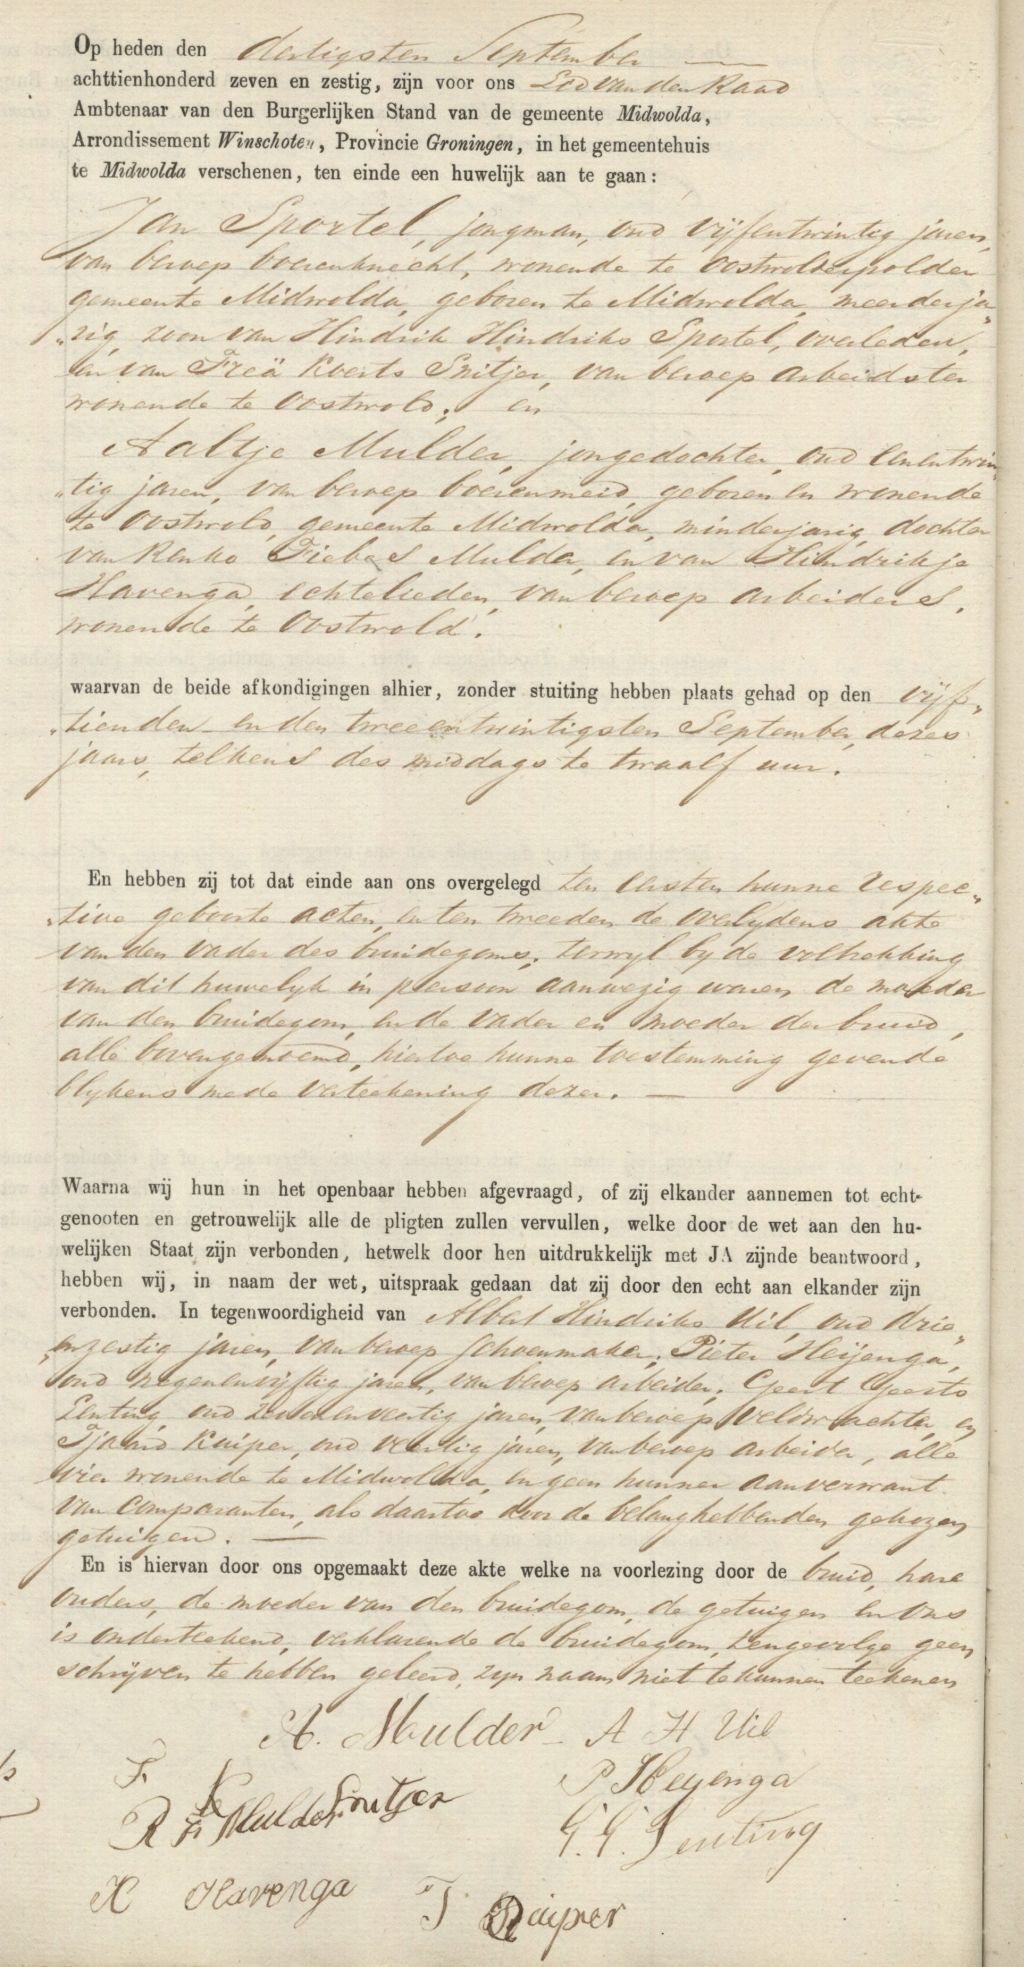 Op heden den dertigsten September
achttienhonderd zeven en zestig, zijn voor ons Lid van den Raad
Ambtenaar van den Burgerlijken Stand van de gemeente Midwolda,
Arrondissement Winschoten, Provincie Groningen, in het gemeentehuis
te Midwolda verschenen, ten einde een huwelijk aan te gaan:
Jan Sportel, jongman, oud vijfentwintig jaren,
van beroep boerenknecht, wonende te Oostwolderpolder
gemeente Midwolda, geboren te Midwolda, meerderja„
„rig, zoon van Hindrik Hindriks Sportel, overleden,
en van Freä Koerts Snitjer, van beroep arbeidster
wonende te Oostwold; en
Aaltje Mulder, jongedochter, oud eenentwin„
„tig jaren, van beroep boerenmeid, geboren en wonende
te Oostwold, gemeente Midwolda, minderjarig, dochter
van Renko Fiebes Mulder, en van Hindrikje
Havenga, echtelieden, van beroep arbeiders,
wonende te Oostwold.
waarvan de beide afkondigingen alhier, zonder stuiting hebben plaats gehad op den vijf„
„tienden en den tweeentwintigsten September, dezes
jaars, telkens des middags te twaalf uur.
En hebben zij tot dat einde aan ons overgelegd ten eersten hunne respec„
„tive geboorte acten, en ten tweeden de overlijdens akte
van den vader des bruidegoms; terwyl by de voltrekking
van dit huwelyk in persoon aanwezig waren de moeder
van den bruidegom, en de vader en moeder der bruid,
alle bovengenoemd, hiertoe hunne toestemming gevende
blykens mede verteekening dezer.
Waarna wij hun in het openbaar hebben afgevraagd, of zij elkander aannemen tot echt-
genooten en getrouwelijk alle de pligten zullen vervullen, welke door de wet aan den hu-
welijken Staat zijn verbonden, hetwelk door hen uitdrukkelijk met JA zijnde beantwoord,
hebben wij, in naam der wet, uitspraak gedaan dat zij door den echt aan elkander zijn
verbonden. In tegenwoordigheid van Albert Hindriks Uil, oud drie„
„enzestig jaren, van beroep schoenmaker; Pieter Heijenga,
oud negenenvijftig jaren, van beroep arbeider; Geert Geerts
Lenting, oud zevenenveertig jaren, van beroep veldwachter, en
Tjaard Kuiper, oud veertig jaren, van beroep arbeider, alle
vier wonende te Midwolda, en geen hunner aanverwant
van comparanten, als daartoe door de belanghebbenden gekozen
getuigen.
En is hiervan door ons opgemaakt deze akte welke na voorlezing door de bruid, hare
ouders, de moeder van den bruidegom, de getuigen en ons
is onderteekend, verklarende de bruidegom, tengevolge geen
schrijven te hebben geleerd, zyn naam niet te kunnen teekenen
A. Mulder A H Uil
F K Snitjer P Heyenga
R F Mulder G. G. Lenting
H Havenga T Kuiper